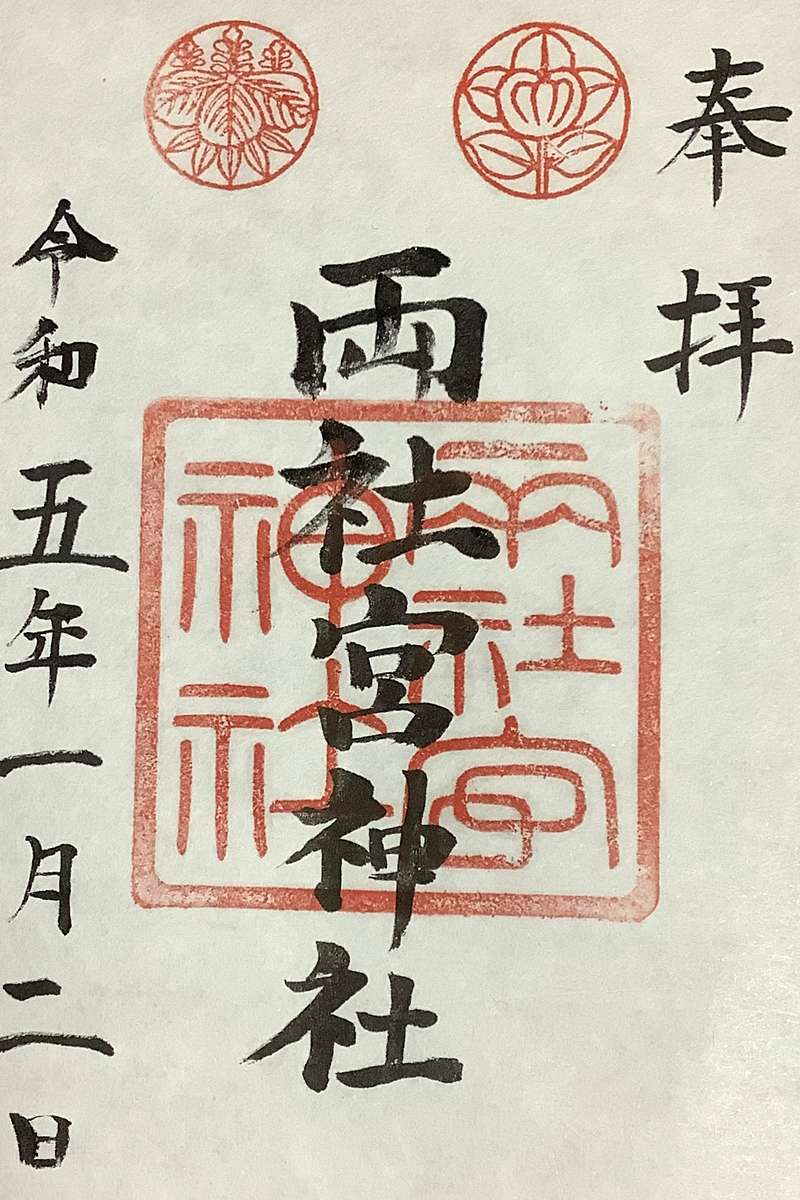 奉拝
両社宮神社
両社宮神社
令和五年一月二日